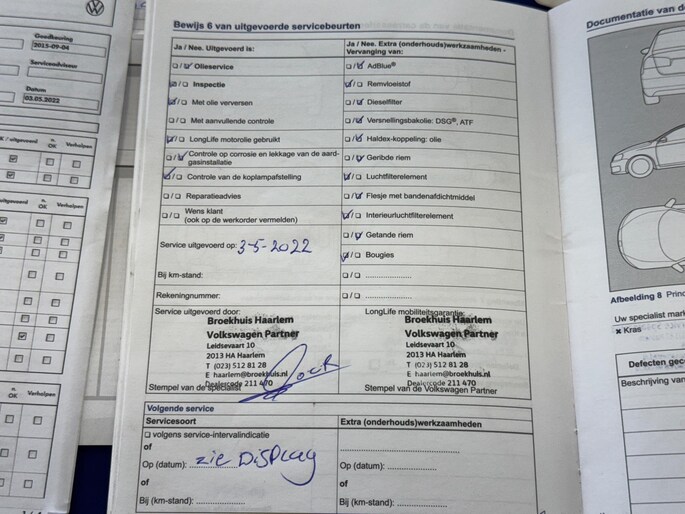 Goedkeuring
2015-09-04
Serviceadviseur
Datum
03.05.2022
K / uitgevoerd
n. OK
Verhelpen
uitgevoerd
n. OK
Verhelpen
n. OK
Verhelpen
Bewijs 6 van uitgevoerde servicebeurten
Ja / Nee. Uitgevoerd is:
Olieservice
Inspectie
Met olie verversen
Met aanvullende controle
LongLife motorolie gebruikt
Controle op corrosie en lekkage van de aard-
gasinstallatie
Controle van de koplampafstelling
Reparatieadvies
Wens klant
(ook op de werkorder vermelden)
Service uitgevoerd op: 3-5-2022
Bij km-stand:
Rekeningnummer:
Service uitgevoerd door:
Broekhuis Haarlem
Volkswagen Partner
Leidsevaart 10
2013 HA Haarlem
T (023) 512 81 28
E haarlem@broekhuis.nl
Dealercode 211 470
Stempel van de specialist
Ja / Nee. Extra (onderhouds)werkzaamheden -
Vervanging van:
AdBlue®
Remvloeistof
Dieselfilter
Versnellingsbakolie: DSG®, ATF
Haldex-koppeling: olie
Geribde riem
Luchtfilterelement
Flesje met bandenafdichtmiddel
Interieurluchtfilterelement
Getande riem
Bougies
LongLife mobiliteitsgarantie:
Broekhuis Haarlem
Volkswagen Partner
Leidsevaart 10
2013 HA Haarlem
T (023) 512 81 28
E haarlem@broekhuis.nl
Dealercode 211 470
Stempel van de Volkswagen Partner
Volgende service
Servicesoort
volgens service-intervalindicatie
of
Op (datum): zie DISPLAY
of
Bij (km-stand):
Extra (onderhouds)werkzaamheden
Documentatie van de
Afbeelding 8 Princ
Uw specialist mark
× Kras
Defecten gec
Beschrijving van